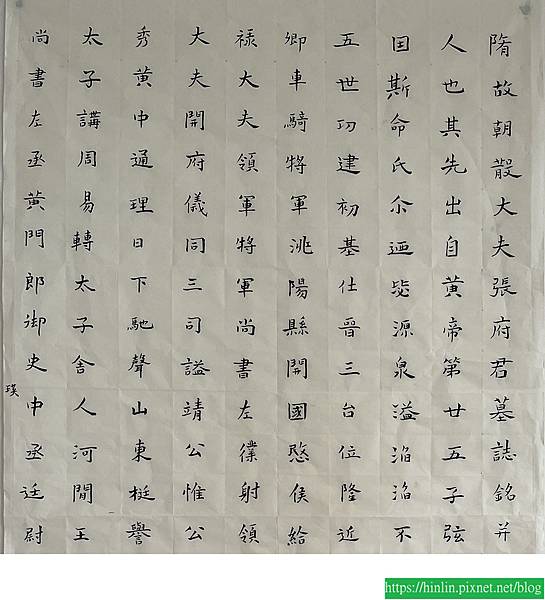 隋故朝散大夫張府君墓誌銘并
人也其先出自黃帝第廿五子弦
囙斯命氏尒迺毖源泉溢滔滔不
五世功建初基仕晉三台位隆近
卿車騎將軍洮陽縣開國愍侯給
祿大夫領軍將軍尚書左僕射領
大夫開府儀同三司謚靖公惟公
秀黃中通理日下馳聲山東挺譽
太子講周易轉太子舍人河間王
尚書左丞黃門郎御史中丞廷尉
瑛
https://hinlin.pixnet.net/blog